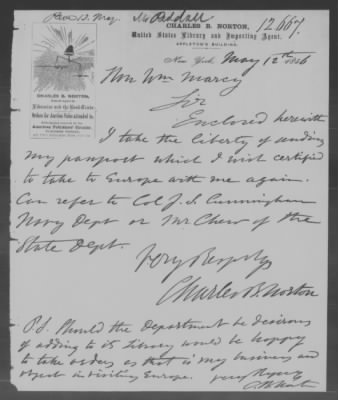 Rec 13. May.
Mr Riddall
12.667.
CHARLES B. NORTON,
United States Library and Importing Agent.
APPLETON'S BUILDING.
New York May 12th 1856
CHARLES B. NORTON,
Orders for Auction Sales attended to.
Hon Wm Marcy
Sir
Enclosed herewith
I take the liberty of sending
my passport which I wish certified
to take to Europe with me again.
Can refer to Col J. S. Cunningham
Navy Dept or Mr Chew of the
State Dept.
Very Respy
Charles B. Norton
P.S. Should the Department be desirous
of adding to its Library would be happy
to take orders as that is my business and
object in visiting Europe.
Very Respy
C B Norton